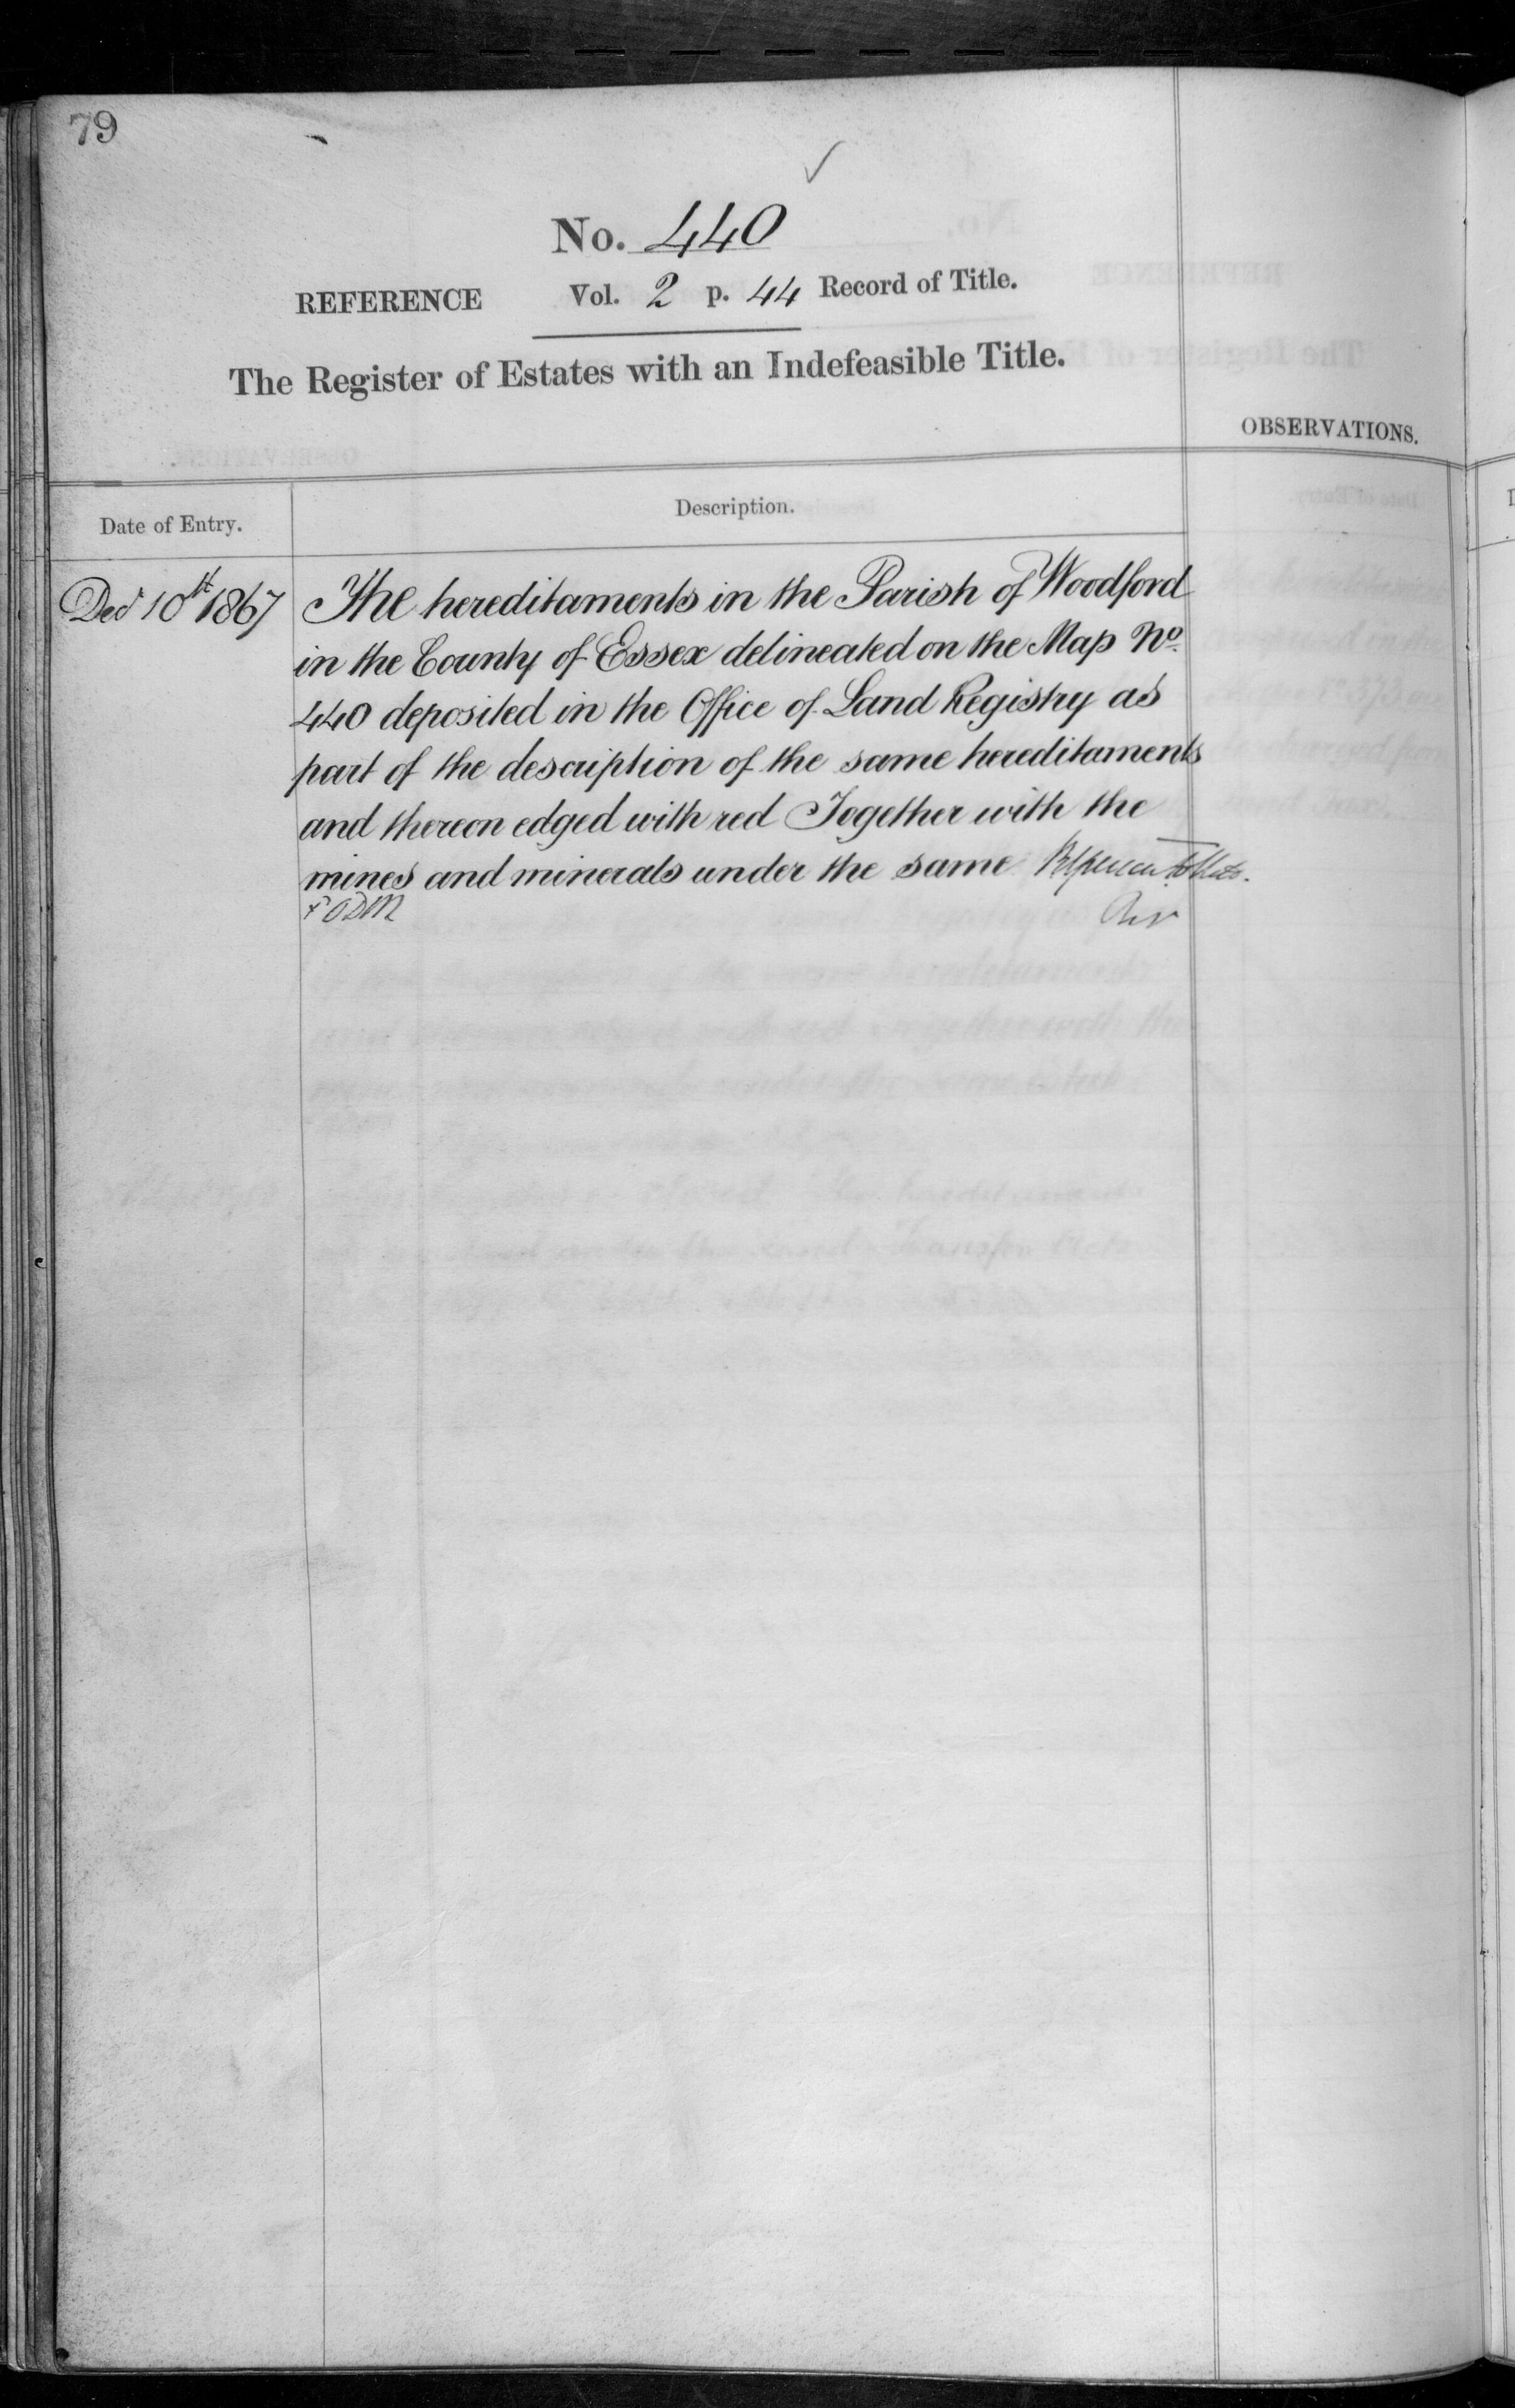 79
No. 440
REFERENCE Vol. 2 p. 44 Record of Title.
The Register of Estates with an Indefeasible Title.
OBSERVATIONS.
Date of Entry.
Description.
Decr 10th 1867
The hereditaments in the Parish of Woodford
in the County of Essex delineated on the Map No.
440 deposited in the Office of Land Registry as
part of the description of the same hereditaments
and thereon edged with red Together with the
mines and minerals under the same